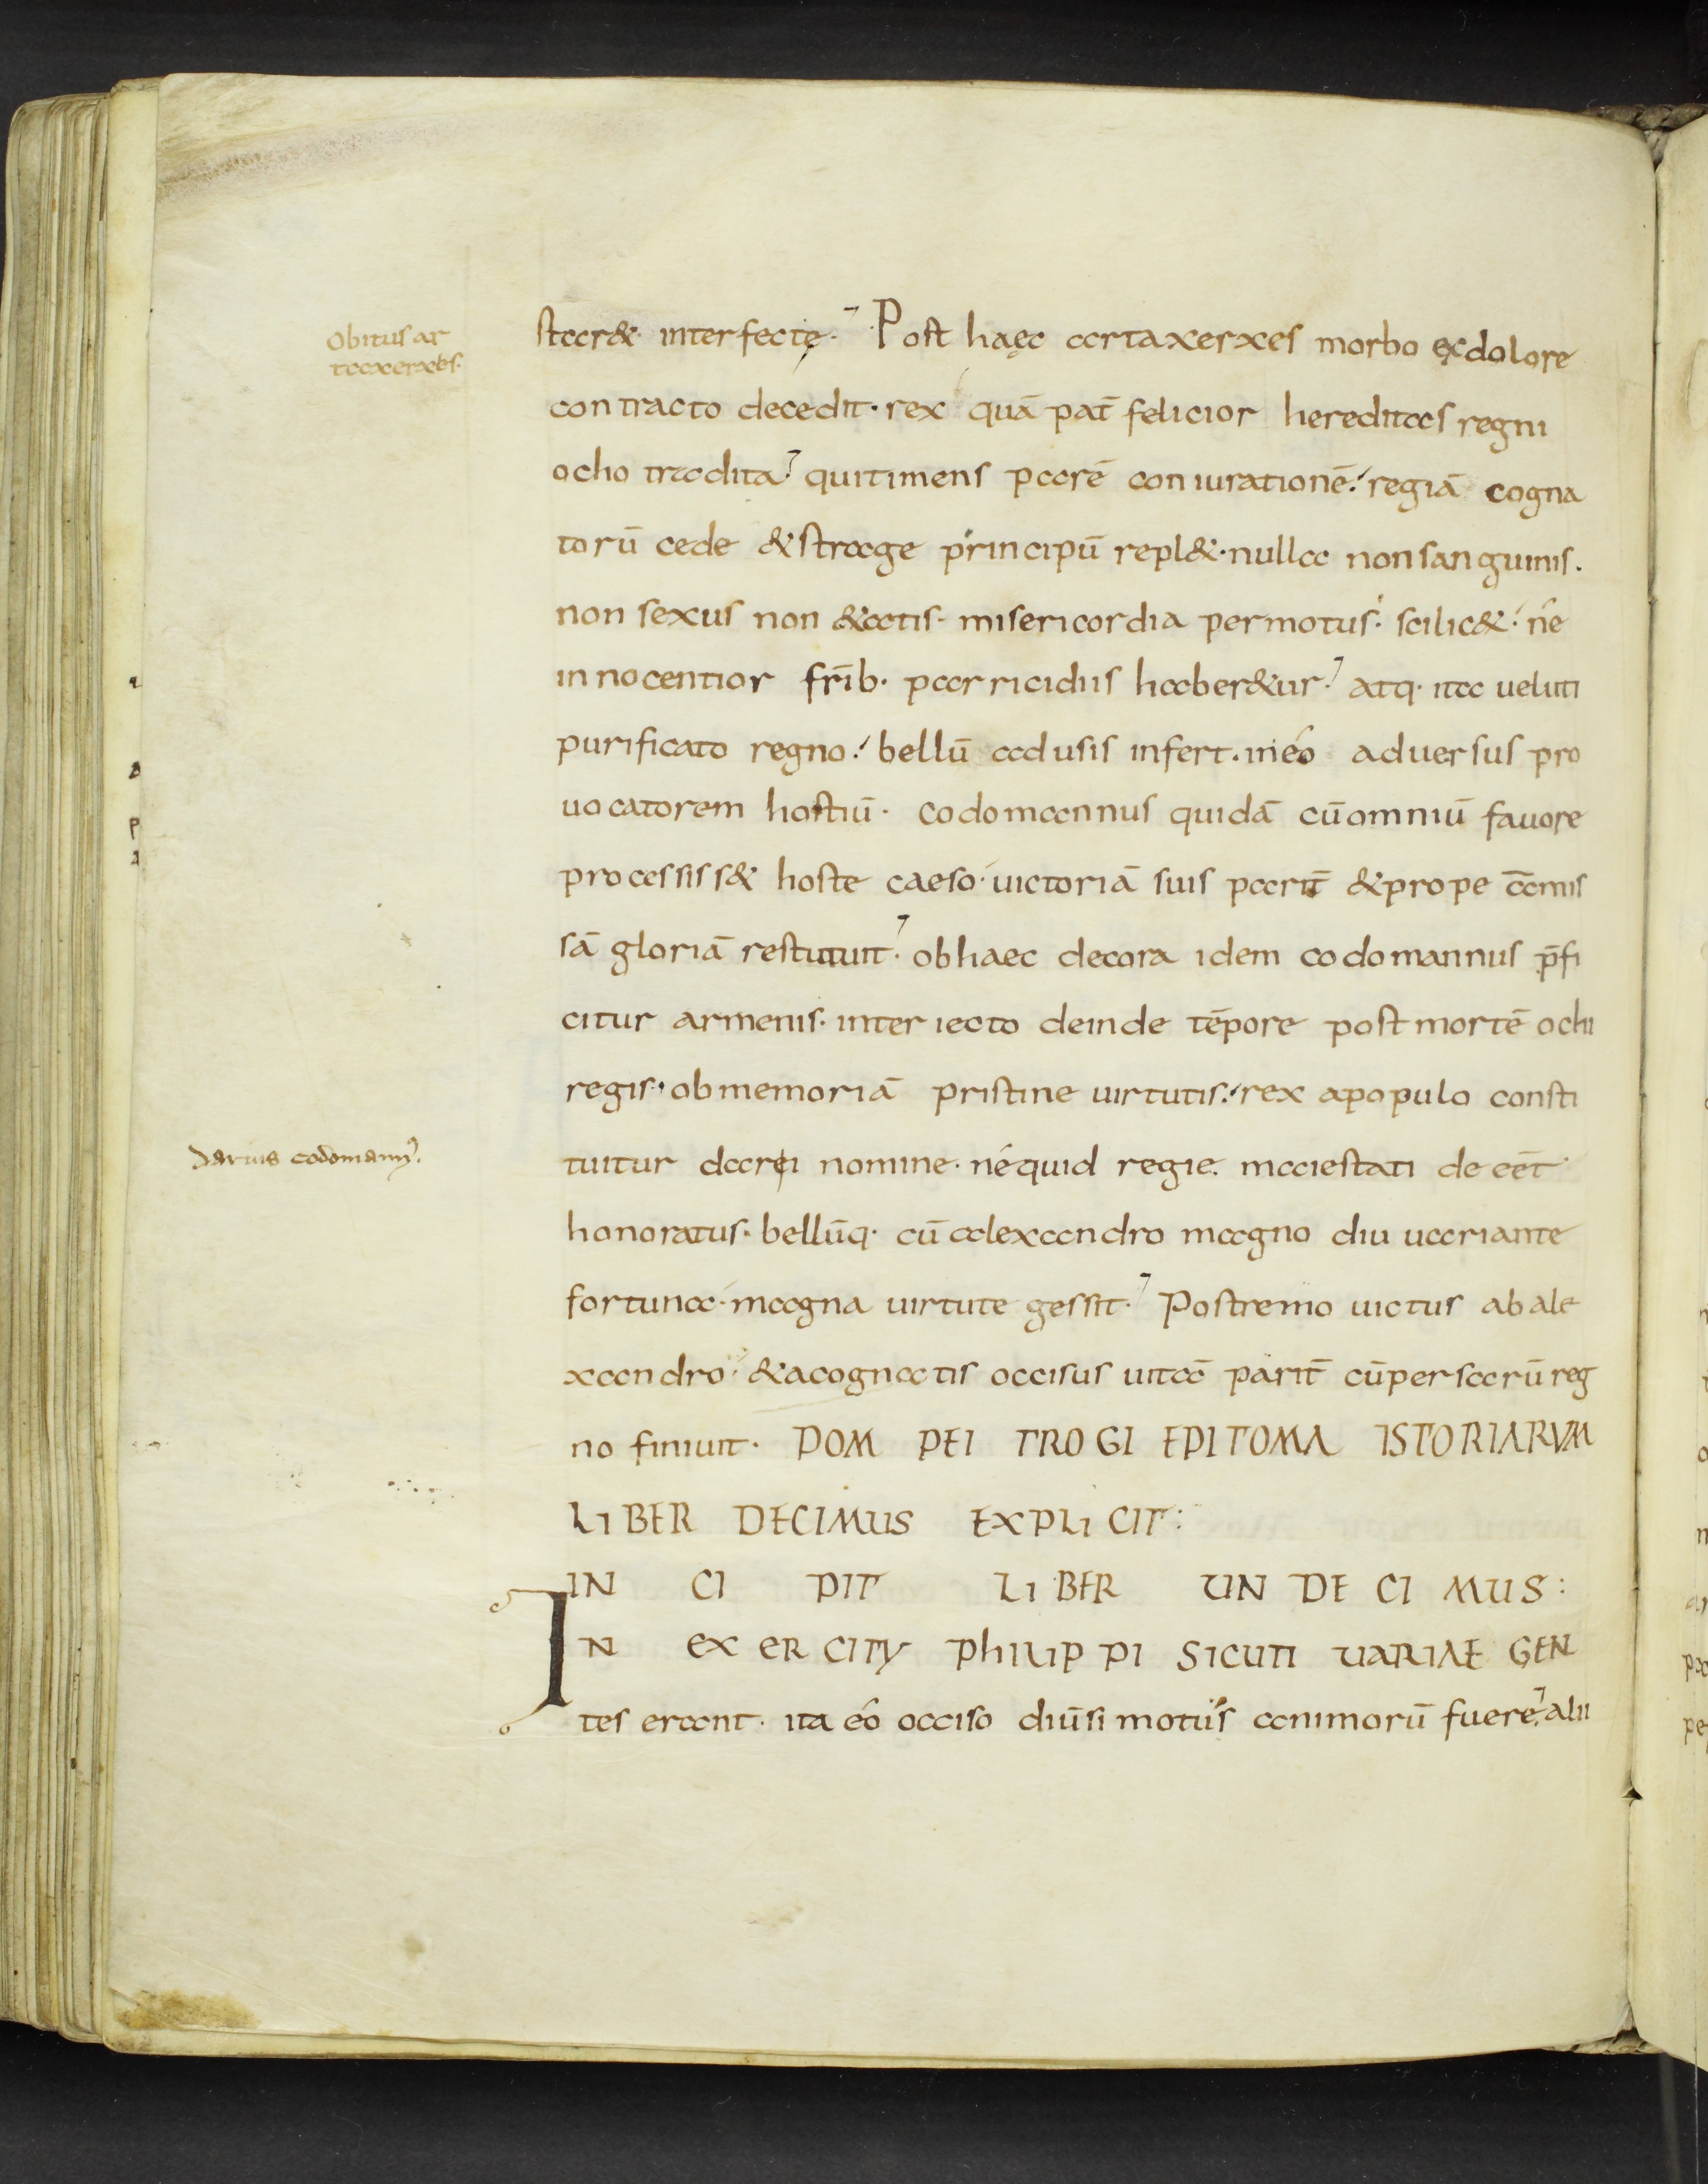 Obitus ar
taxerxis.
star& interfectę. Post haęc artaxerxes morbo ex dolore
contracto decedit. rex quā pat̄ felicior hereditas regni
ocho tradita. qui timens parē coniurationē. regiā cogna
torū cede & strage principū repl&. nulla non sanguinis.
non sexus non &atis. misericordia permotus. scilic&. ne
innocentior fr̄ib. parricidiis haber&ur. atq. ita ueluti
purificato regno. bellū adusis infert. in eo aduersus pro
uocatorem hostiū. codomannus quidā cū omniū fauore
processiss& hoste caeso uictoriā suis parit̄ & prope āmis
sā gloriā restituit. ob haec decora idem codomannus p̄fi
citur armenis. interiecto deinde tēpore post mortē ochi
regis. ob memoriā pristine uirtutis. rex a populo consti
Darius codomann᾿.
tuitur darei nomine. ne quid regie. maiestati de eēt
honoratus. bellūq. cū alexandro magno diu uariante
fortuna. magna uirtute gessit. Postremo uictus ab ale
xandro. & a cognatis occisus uitā parit̄ cū persarū reg
no finiuit. POMPEI TROGI EPITOMA ISTORIARVM
LIBER DECIMUS EXPLICIT:
INCIPIT LIBER UNDECIMUS:
IN EXERCITV PHILIPPI SICUTI UARIAE GEN
tes erant. ita eo occiso diūsi motus animorū fuere. alii